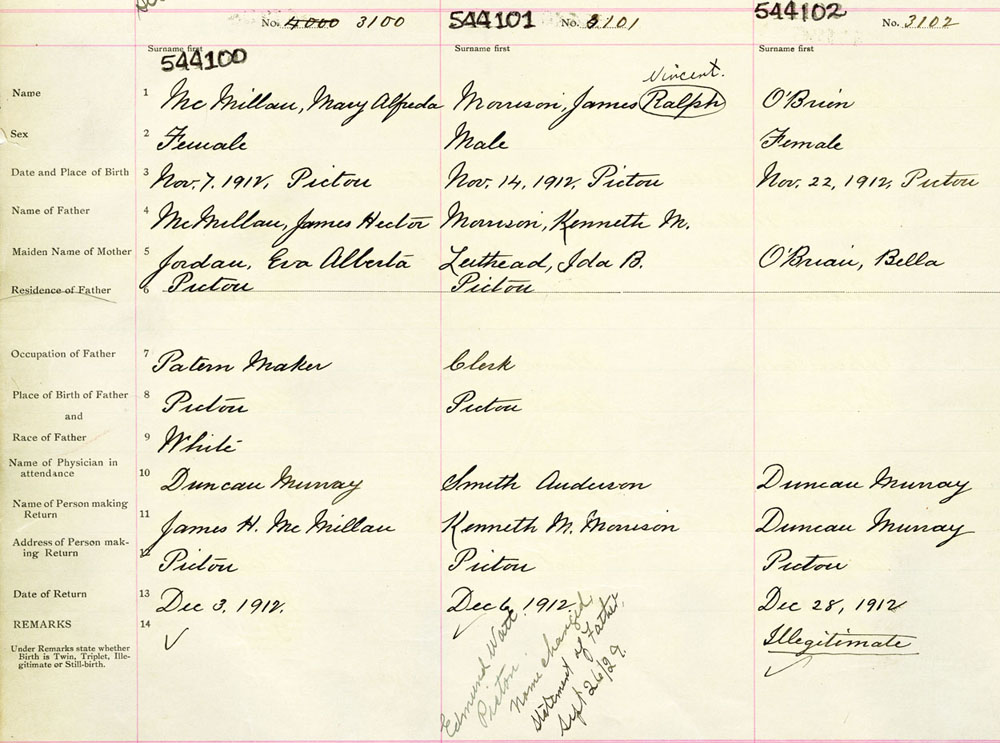 No. 4000 3100
544101 No. 3101
544102 No. 3102
Surname first
Surname first
Surname first
544100
Vincent.
Name 1 McMillan, Mary Alfreda
Morrison, James Ralph
O'Brien
Sex 2 Female
Male
Female
Date and Place of Birth 3 Nov. 7. 1912, Pictou
Nov. 14, 1912, Pictou
Nov. 22, 1912, Pictou
Name of Father 4 McMillan, James Hector
Morrison, Kenneth M.
Maiden Name of Mother 5 Jordan, Eva Alberta
Leithead, Ida B.
O'Brian, Bella
Residence of Father 6 Pictou
Pictou
Occupation of Father 7 Patern Maker
Clerk
Place of Birth of Father 8 Pictou
Pictou
and
Race of Father 9 White
Name of Physician in
attendance 10 Duncan Murray
Smith Anderson
Duncan Murray
Name of Person making
Return 11 James H. McMillan
Kenneth M. Morrison
Duncan Murray
Address of Person mak-
ing Return 12 Pictou
Pictou
Pictou
Date of Return 13 Dec 3, 1912.
Dec 6, 1912
Dec 28, 1912
REMARKS 14
Illegitimate
Under Remarks state whether
Birth is Twin, Triplet, Ille-
gitimate or Still-birth.
Edmund Watt
Pictou
Name changed
Statement of Father,
Sept 26/29.